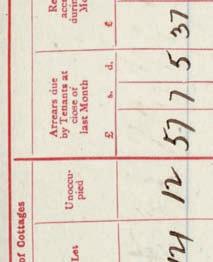 of Cottages
Let
Unoccu-
pied
Arrears due
by Tenants at
close of
last Month
£ s. d.
£
12 57 7 5 37